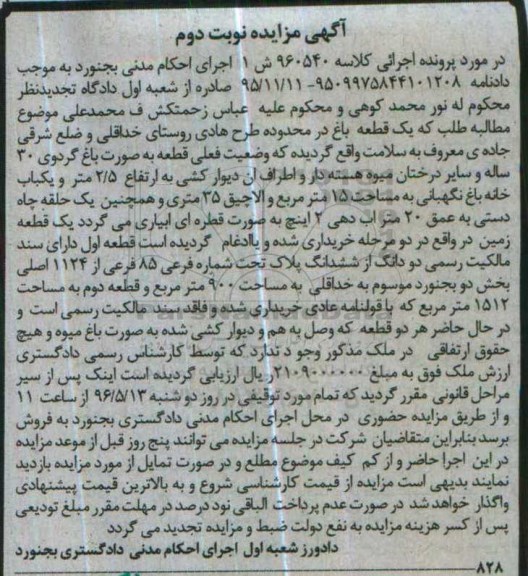 آگهی مزایده نوبت دوم
در مورد پرونده اجرائی کلاسه ۹۶۰۵۴۰ ش ۱ اجرای احکام مدنی بجنورد به موجب
دادنامه ۹۵۰۹۹۷۵۸۴۴۱۰۱۲۰۸-۹۵/۱۱/۱۱ صادره از شعبه اول دادگاه تجدیدنظر
محکوم له نور محمد کوهی و محکوم علیه عباس زحمتکش ف محمدعلی موضوع
مطالبه طلب که یک قطعه باغ در محدوده طرح هادی روستای خداقلی و ضلع شرقی
جاده ی معروف به سلامت واقع گردیده که وضعیت فعلی قطعه به صورت باغ گردوی ۳۰
ساله و سایر درختان میوه هسته دار و اطراف ان دیوار کشی به ارتفاع ۲/۵ متر و یکباب
خانه باغ نگهبانی به مساحت ۱۵ متر مربع و الاچیق ۳۵ متری و همچنین یک حلقه چاه
دستی به عمق ۲۰ متر اب دهی ۲ اینچ به صورت قطره ای ابیاری می گردد یک قطعه
زمین در واقع در دو مرحله خریداری شده و باادغام گردیده است قطعه اول دارای سند
مالکیت رسمی دو دانگ از ششدانگ پلاک تحت شماره فرعی ۸۵ فرعی از ۱۱۲۴ اصلی
بخش دو بجنورد موسوم به خداقلی به مساحت ۹۰۰ متر مربع و قطعه دوم به مساحت
۱۵۱۲ متر مربع که با قولنامه عادی خریداری شده و فاقد سند مالکیت رسمی است و
در حال حاضر هر دو قطعه که وصل به هم و دیوار کشی شده به صورت باغ میوه و هیچ
حقوق ارتفاقی در ملک مذکور وجود ندارد که توسط کارشناس رسمی دادگستری
ارزش ملک فوق به مبلغ ۲۱۰۹۰۰۰۰۰۰ریال ارزیابی گردیده است اینک پس از سیر
مراحل قانونی مقرر گردید که تمام مورد توقیفی در روز دو شنبه ۹۶/۵/۱۳ از ساعت ۱۱
و از طریق مزایده حضوری در محل اجرای احکام مدنی دادگستری بجنورد به فروش
برسد بنابراین متقاضیان شرکت در جلسه مزایده می توانند پنج روز قبل از موعد مزایده
در این اجرا حاضر و از کم کیف موضوع مطلع و در صورت تمایل از مورد مزایده بازدید
نمایند بدیهی است مزایده از قیمت کارشناسی شروع و به بالاترین قیمت پیشنهادی
واگذار خواهد شد در صورت عدم پرداخت الباقی نود درصد در مهلت مقرر مبلغ تودیعی
پس از کسر هزینه مزایده به نفع دولت ضبط و مزایده تجدید می گردد
دادورز شعبه اول اجرای احکام مدنی دادگستری بجنورد
۸۲۸